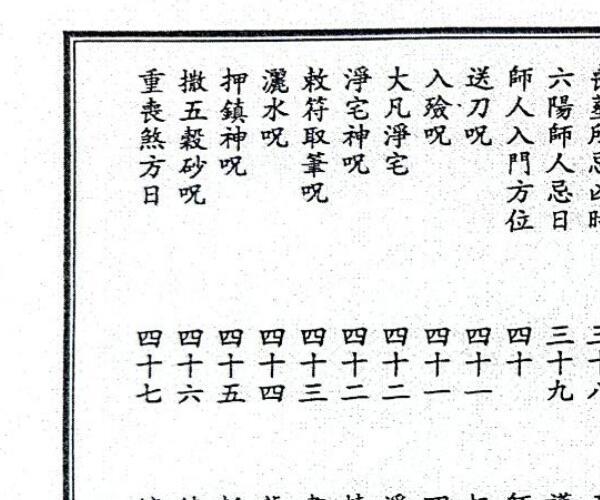 六陽師人忌日 三十九
師人入門方位 四十
送刀呪 四十一
入殮呪 四十一
大凡淨宅 四十二
淨宅神呪 四十二
敕符取筆呪 四十三
灑水呪 四十四
押鎮神呪 四十五
撒五穀砂呪 四十六
重喪煞方日 四十七